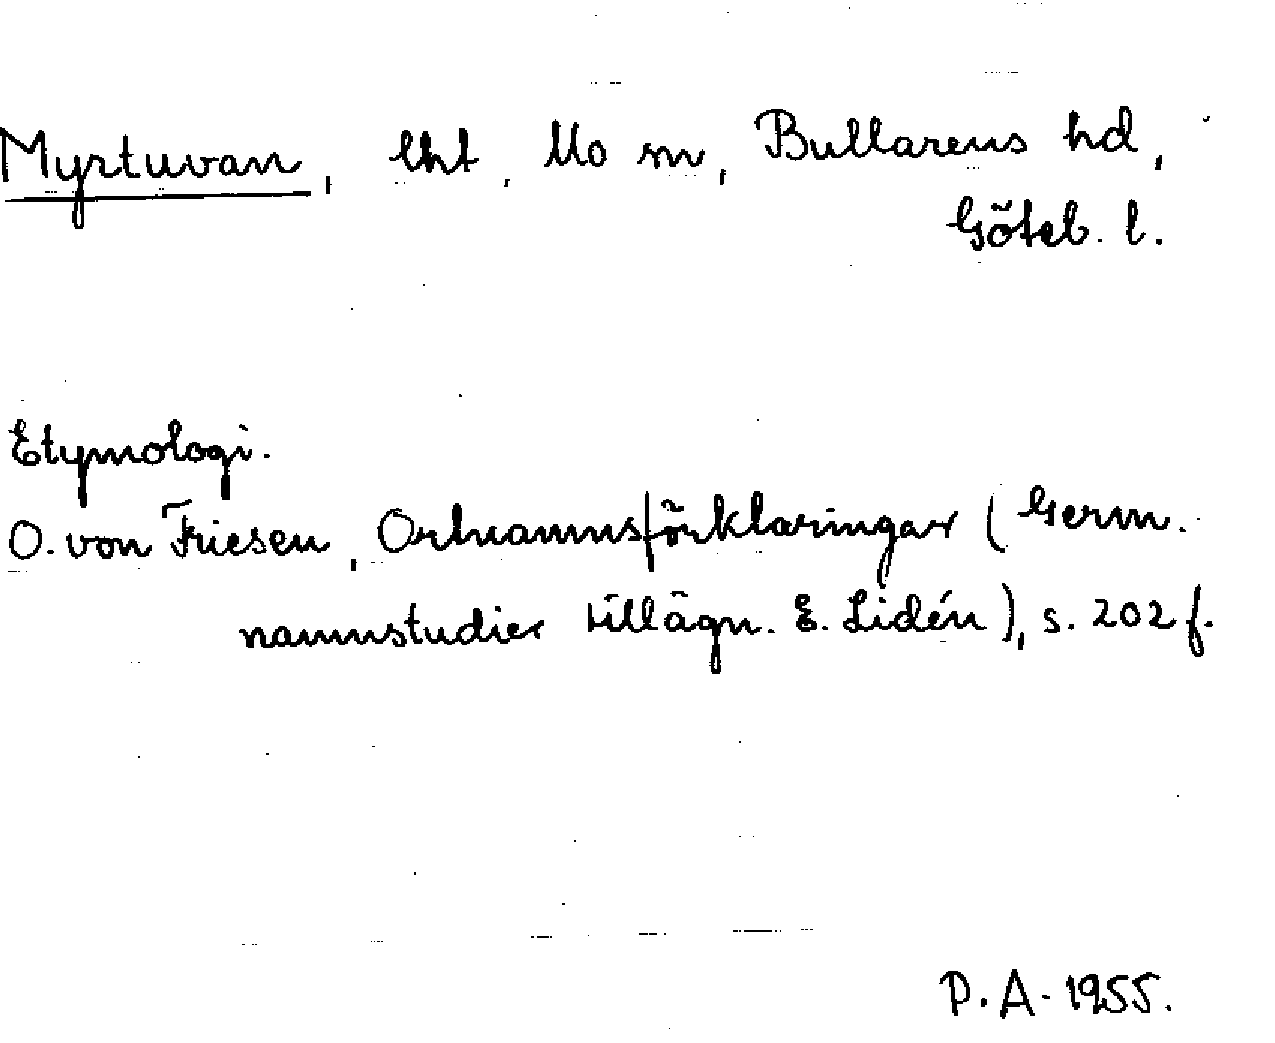 Myrtuvan, lht, Mo sn, Bullarens hd,
Göteb. l.
Etymologi.
O. von Friesen, Ortnamnsförklaringar (Germ.
namnstudier tillägn. E. Lidén), s. 202 f.
P.A. 1955.